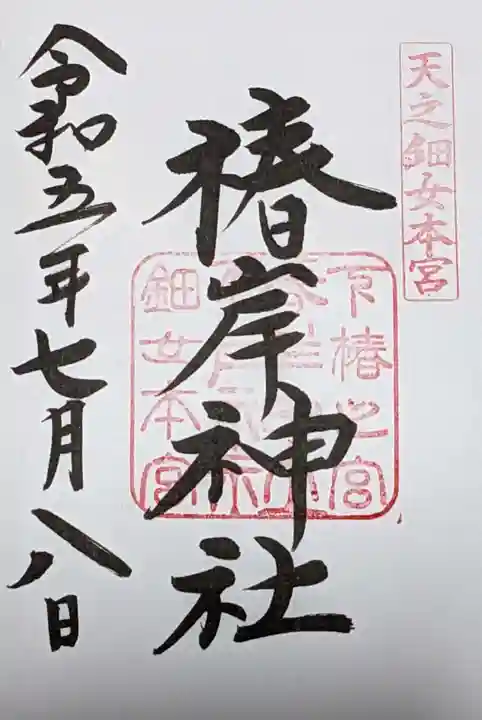 天之鈿女本宮
椿岸神社
天椿之宮
鈿女本宮
令和五年七月八日